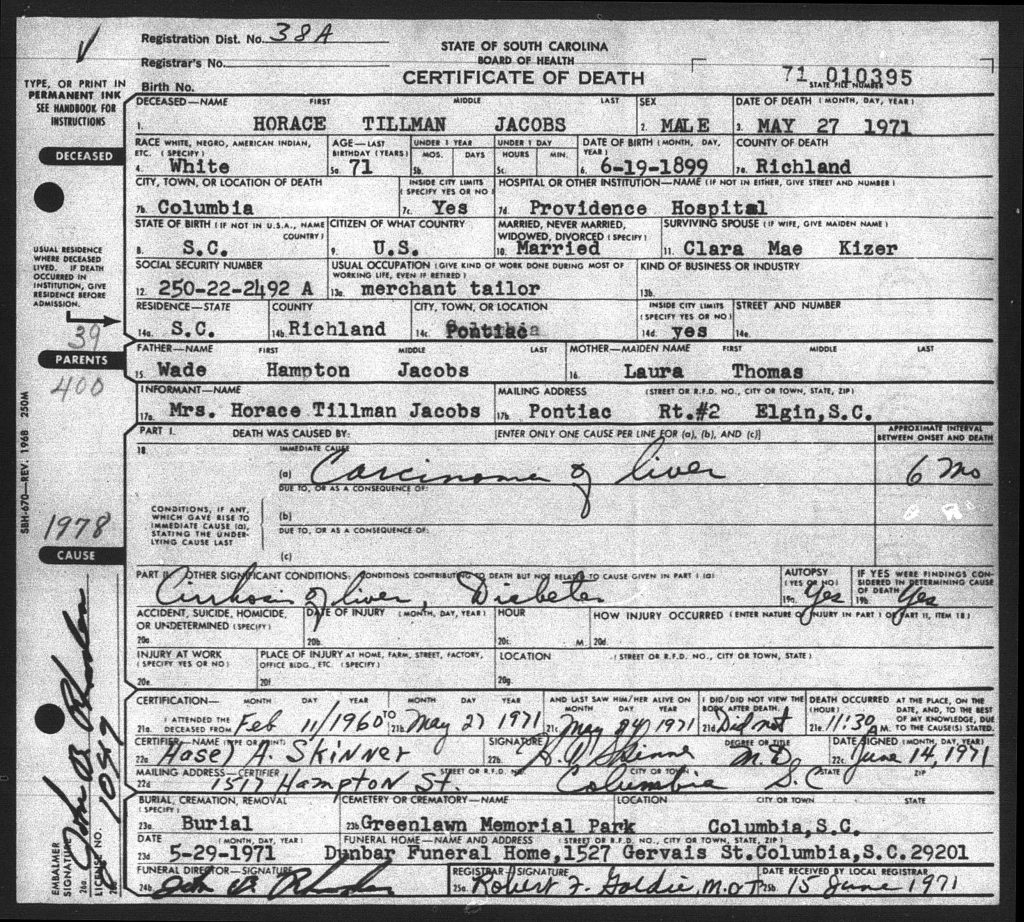 Registration Dist. No. 38A
Registrar's No.
Birth No.
STATE OF SOUTH CAROLINA
BOARD OF HEALTH
CERTIFICATE OF DEATH
71 010395
STATE FILE NUMBER
TYPE, OR PRINT IN
PERMANENT INK
SEE HANDBOOK FOR
INSTRUCTIONS
DECEASED—NAME FIRST MIDDLE LAST SEX DATE OF DEATH (MONTH, DAY, YEAR)
1. HORACE TILLMAN JACOBS 2. MALE 3. MAY 27 1971
DECEASED
RACE WHITE, NEGRO, AMERICAN INDIAN, ETC. (SPECIFY) AGE—LAST BIRTHDAY (YEARS) UNDER 1 YEAR MOS. DAYS UNDER 1 DAY HOURS MIN. DATE OF BIRTH (MONTH, DAY, YEAR) COUNTY OF DEATH
4. White 5a. 71 5b. 5c. 6. 6-19-1899 7a. Richland
CITY, TOWN, OR LOCATION OF DEATH INSIDE CITY LIMITS (SPECIFY YES OR NO) HOSPITAL OR OTHER INSTITUTION—NAME (IF NOT IN EITHER, GIVE STREET AND NUMBER)
7b. Columbia 7c. Yes 7d. Providence Hospital
STATE OF BIRTH (IF NOT IN U.S.A., NAME COUNTRY) CITIZEN OF WHAT COUNTRY MARRIED, NEVER MARRIED, WIDOWED, DIVORCED (SPECIFY) SURVIVING SPOUSE (IF WIFE, GIVE MAIDEN NAME)
8. S.C. 9. U.S. 10. Married 11. Clara Mae Kizer
USUAL RESIDENCE
WHERE DECEASED
LIVED. IF DEATH
OCCURRED IN
INSTITUTION, GIVE
RESIDENCE BEFORE
ADMISSION.
SOCIAL SECURITY NUMBER USUAL OCCUPATION (GIVE KIND OF WORK DONE DURING MOST OF WORKING LIFE, EVEN IF RETIRED) KIND OF BUSINESS OR INDUSTRY
12. 250-22-2492 A 13a. merchant tailor 13b.
RESIDENCE—STATE COUNTY CITY, TOWN, OR LOCATION INSIDE CITY LIMITS (SPECIFY YES OR NO) STREET AND NUMBER
14a. S.C. 14b. Richland 14c. Pontiac 14d. yes 14e.
39
PARENTS
400
FATHER—NAME FIRST MIDDLE LAST MOTHER—MAIDEN NAME FIRST MIDDLE LAST
15. Wade Hampton Jacobs 16. Laura Thomas
INFORMANT—NAME MAILING ADDRESS (STREET OR R.F.D. NO., CITY OR TOWN, STATE, ZIP)
17a. Mrs. Horace Tillman Jacobs 17b. Pontiac Rt.#2 Elgin,S.C.
SBH-670—REV. 1968 250M
PART I. DEATH WAS CAUSED BY: [ENTER ONLY ONE CAUSE PER LINE FOR (a), (b), AND (c)] APPROXIMATE INTERVAL BETWEEN ONSET AND DEATH
18 IMMEDIATE CAUSE
(a) Carcinoma of liver 6 mo
DUE TO, OR AS A CONSEQUENCE OF:
CONDITIONS, IF ANY,
WHICH GAVE RISE TO
IMMEDIATE CAUSE (a),
STATING THE UNDER-
LYING CAUSE LAST
(b)
DUE TO, OR AS A CONSEQUENCE OF:
(c)
1978
CAUSE
PART II. OTHER SIGNIFICANT CONDITIONS: CONDITIONS CONTRIBUTING TO DEATH BUT NOT RELATED TO CAUSE GIVEN IN PART I (a) AUTOPSY (YES OR NO) IF YES WERE FINDINGS CONSIDERED IN DETERMINING CAUSE OF DEATH
Cirrhosis of liver, Diabetes 19a. Yes 19b. Yes
ACCIDENT, SUICIDE, HOMICIDE, OR UNDETERMINED (SPECIFY) DATE OF INJURY (MONTH, DAY, YEAR) HOUR HOW INJURY OCCURRED (ENTER NATURE OF INJURY IN PART I OR PART II, ITEM 18)
20a. 20b. 20c. M. 20d.
INJURY AT WORK (SPECIFY YES OR NO) PLACE OF INJURY AT HOME, FARM, STREET, FACTORY, OFFICE BLDG., ETC. (SPECIFY) LOCATION (STREET OR R.F.D. NO., CITY OR TOWN, STATE)
20e. 20f. 20g.
CERTIFICATION— MONTH DAY YEAR MONTH DAY YEAR AND LAST SAW HIM/HER ALIVE ON MONTH DAY YEAR I DID/DID NOT VIEW THE BODY AFTER DEATH. DEATH OCCURRED (HOUR) AT THE PLACE, ON THE DATE, AND, TO THE BEST OF MY KNOWLEDGE, DUE TO THE CAUSE(S) STATED.
21a. I ATTENDED THE DECEASED FROM Feb 11/1960 TO 21b. May 27 1971 21c. May 24/1971 21d. Did not 21e. 11:30 A M.
CERTIFIER—NAME (TYPE OR PRINT) SIGNATURE DEGREE OR TITLE DATE SIGNED (MONTH, DAY, YEAR)
22a. Hasel A. Skinner 22b. H. A. Skinner M.D. 22c. June 14, 1971
MAILING ADDRESS—CERTIFIER STREET OR R.F.D. NO. CITY OR TOWN STATE ZIP
22d. 1517 Hampton St. Columbia S.C
BURIAL, CREMATION, REMOVAL (SPECIFY) CEMETERY OR CREMATORY—NAME LOCATION CITY OR TOWN STATE
23a. Burial 23b. Greenlawn Memorial Park Columbia,S.C.
DATE (MONTH, DAY, YEAR) FUNERAL HOME—NAME AND ADDRESS (STREET OR R.F.D. NO., CITY OR TOWN, STATE, ZIP)
23d 5-29-1971 Dunbar Funeral Home,1527 Gervais St.Columbia,S.C.29201
FUNERAL DIRECTOR—SIGNATURE REGISTRAR—SIGNATURE DATE RECEIVED BY LOCAL REGISTRAR
24b. John B. 25a. Robert F. Goldie, M.O.T 25b. 15 June 1971
EMBALMER
SIGNATURE
24a. John B.
LICENSE NO. 1047